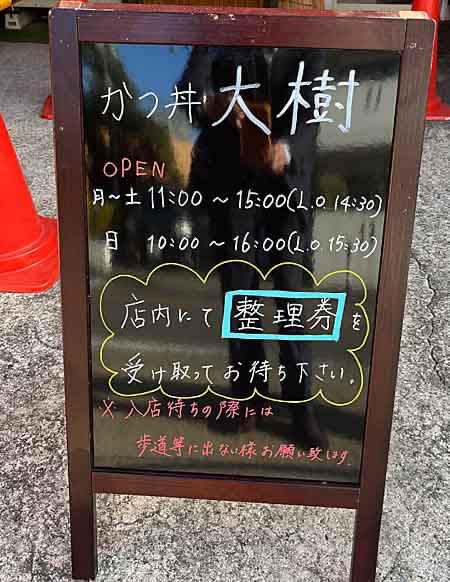 かつ丼 大樹
OPEN
月～土 11:00 ～ 15:00(L.O.14:30)
日 10:00 ～ 16:00(L.O.15:30)
店内にて 整理券 を
受け取ってお待ち下さい。
※入店待ちの際には
歩道等に出ない様お願い致します。